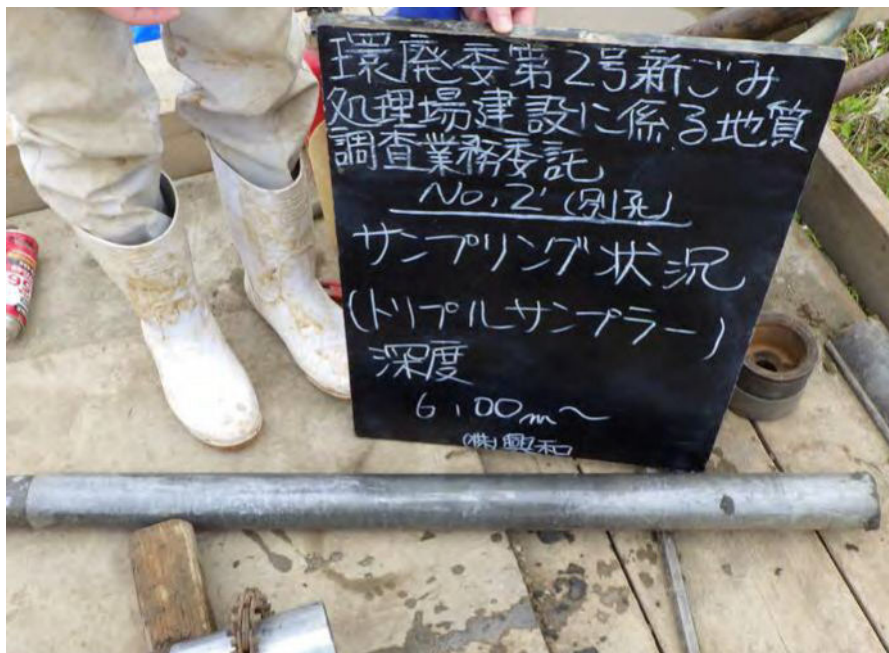 環廃委第2号新ごみ
処理場建設に係る地質
調査業務委託
No.2'(別孔)
サンプリング状況
(トリプルサンプラー)
深度
6.00m～
(株)興和